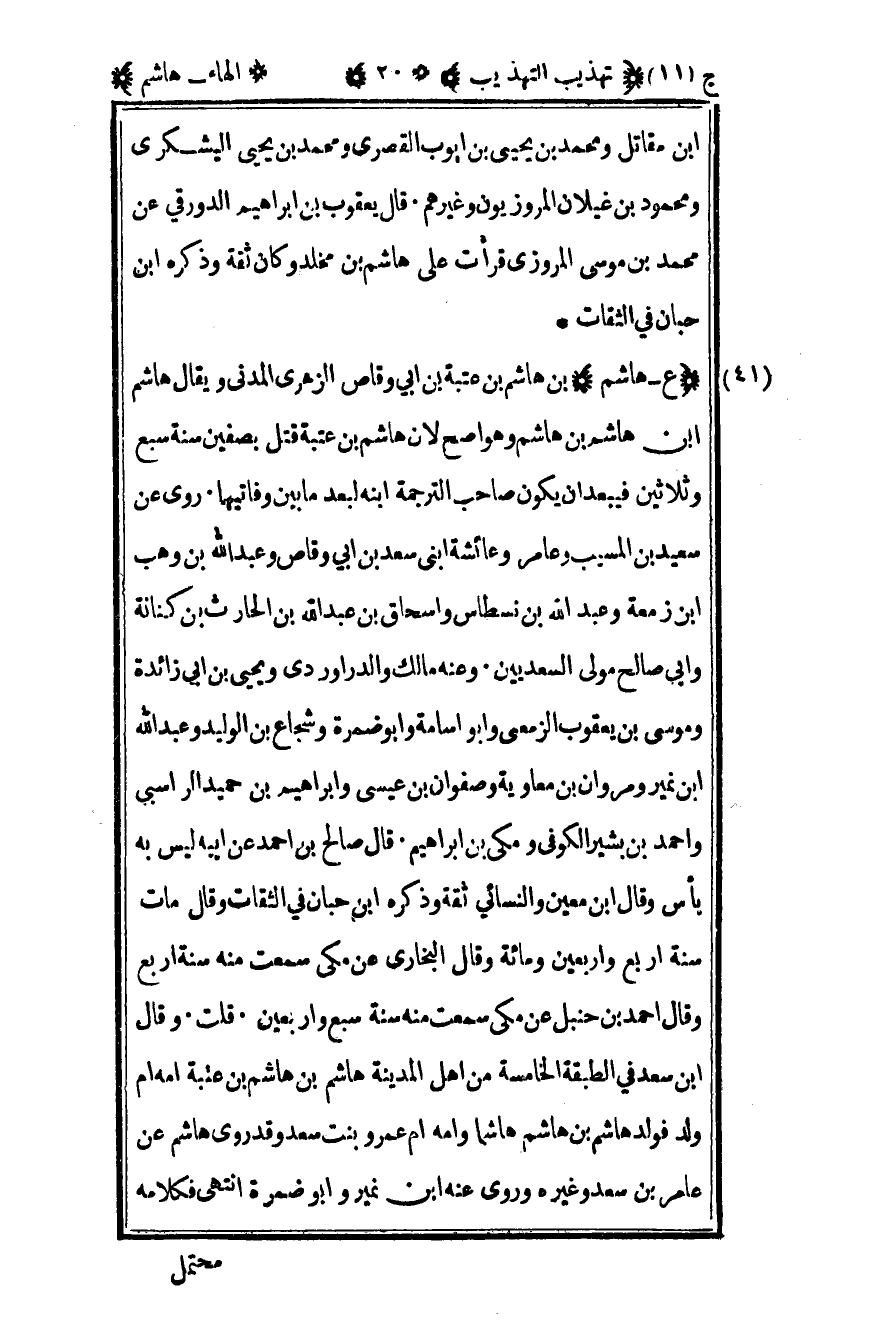 ج (١١) ﴿ تهذيب التهذيب ﴾ ﴿ ٢٠ ﴾ ﴿ الهاء ـ هاشم ﴾
ابن مقاتل ومحمد بن يحيى بن ايوب القصرى ومحمد بن يحيى اليشكرى
ومحمود بن غيلان المروزيون وغيرهم · قال يعقوب بن ابراهيم الدورقي عن
محمد بن موسى المروزى قرأت على هاشم بن مخلد وكان ثقة وذكره ابن
حبان في الثقات •
(٤١) ﴿ ع ـ هاشم ﴾ بن هاشم بن عتبة بن ابي وقاص الزهرى المدنى ويقال هاشم
ابن هاشم بن هاشم وهو اصح لان هاشم بن عتبة قتل بصفين سنة سبع
وثلاثين فيبعد ان يكون صاحب الترجمة ابنه لبعد ما بين وفاتيهما · روى عن
سعيد بن المسيب وعامر وعائشة ابنى سعد بن ابي وقاص وعبد الله بن وهب
ابن زمعة وعبد الله بن نسطاس واسحاق بن عبد الله بن الحارث بن كنانة
وابي صالح مولى السعديين · وعنه مالك والدراوردى ويحيى بن ابي زائدة
وموسى بن يعقوب الزمعى وابو اسامة وابو ضمرة وشجاع بن الوليد وعبد الله
ابن نمير ومروان بن معاوية وصفوان بن عيسى وابراهيم بن حميد الراسبي
واحمد بن بشير الكوفى ومكى بن ابراهيم · قال صالح بن احمد عن ابيه ليس به
بأس وقال ابن معين والنسائي ثقة وذكره ابن حبان في الثقات وقال مات
سنة اربع واربعين ومائة وقال البخارى عن مكى سمعت منه سنة اربع
وقال احمد بن حنبل عن مكى سمعت منه سنة سبع واربعين · قلت · وقال
ابن سعد في الطبقة الخامسة من اهل المدينة هاشم بن هاشم بن عتبة امه ام
ولد فولد هاشم بن هاشم هاشما وامه ام عمرو بنت سعد وقد روى هاشم عن
عامر بن سعد وغيره وروى عنه ابن نمير وابو ضمرة انتهى فكلامه
محتمل